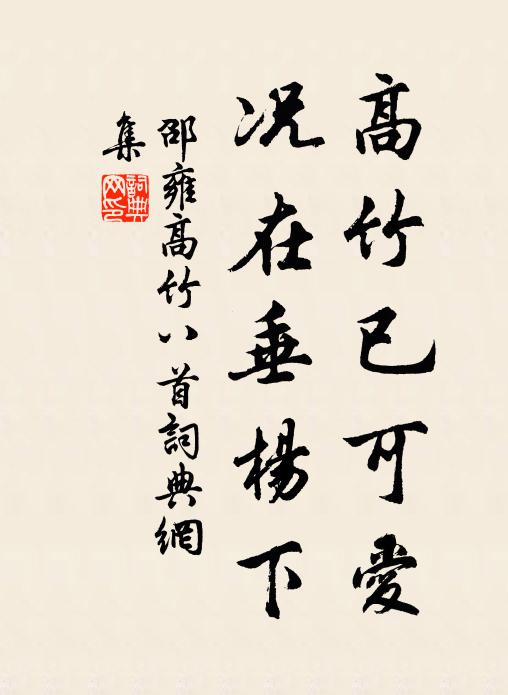 高竹已可愛
况在垂楊下
邵雍高竹八首詞典網
集
詞典
网印